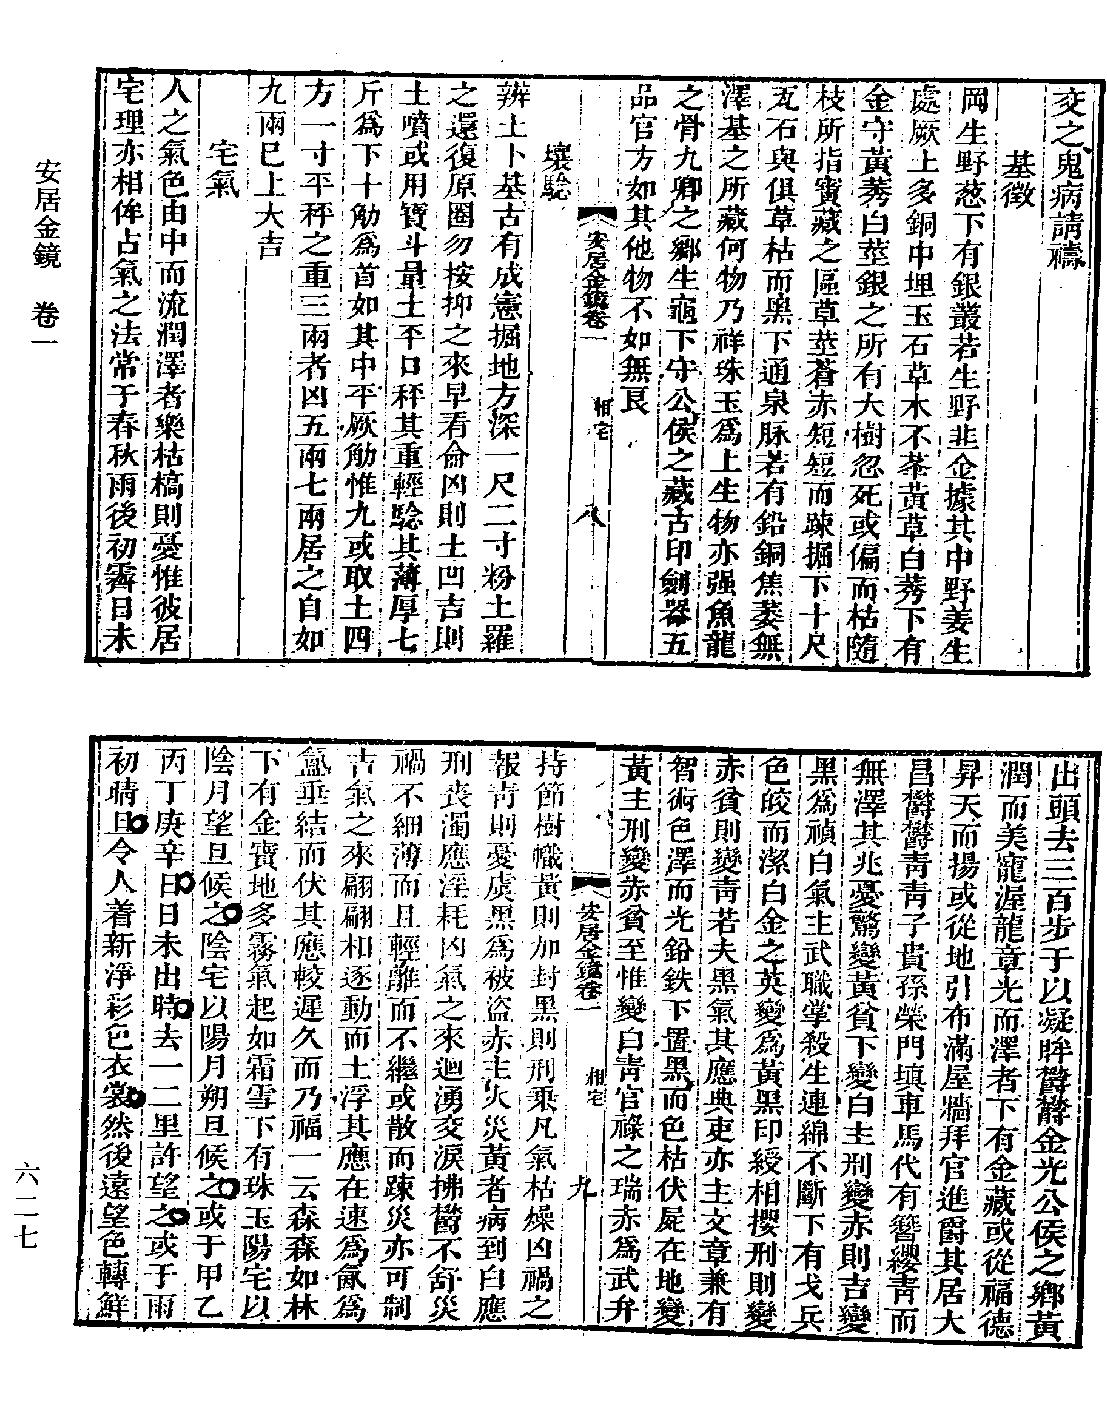 交之鬼病請禱
基徵
岡生野葱下有銀叢若生野韭金據其中野姜生
處厥上多銅中埋玉石草木不茶黃草白莠下有
金守黃莠白莖銀之所有大樹忽死或偏而枯隨
枝所指寶藏之區草莖蒼赤短短而踈掘下十尺
五石與俱草枯而黑下通泉脉若有鉛銅焦萎無
澤基之所藏何物乃祥珠玉爲上生物亦强魚龍
之骨九卿之鄉生龜下守公侯之藏古印劍器五
品官方如其他物不如無艮
安居金鏡卷一 相宅 八
壤騐
辨土卜基古有成憲掘地方深一尺二寸粉土羅
之還復原圈勿按抑之來早看侖凶則土凹吉則
土噴或用寶斗量土平口秤其重輕騐其薄厚七
斤爲下十觔爲首如其中平厥觔惟九或取土四
方一寸平秤之重三兩者凶五兩七兩居之自如
九兩已上大吉
宅氣
人之氣色由中而流潤澤者樂枯槁則憂惟彼居
宅理亦相侔占氣之法常于春秋雨後初霽日未
安居金鏡 卷一
出頭去三百步于以凝眸欝欝金光公侯之鄉黃
潤而美寵渥龍章光而澤者下有金藏或從福德
昇天而揚或從地引布滿屋牆拜官進爵其居大
昌欝欝靑靑子貴孫榮門塡車馬代有簪纓靑而
無澤其兆憂驚變黃貧下變白主刑變赤則吉變
黑爲禎白氣主武職掌殺生連綿不斷下有戈兵
色皎而潔白金之英變爲黃黑印綬相攖刑則變
赤貧則變靑若夫黑氣其應典吏亦主文章兼有
智術色澤而光鉛鉄下置黑而色枯伏屍在地變
黃主刑變赤貧至惟變白靑官祿之瑞赤爲武弁
安居金鏡卷一 相宅 九
持節樹幟黃則加封黑則刑乗凡氣枯燥凶禍之
報靑則憂虞黑爲被盗赤主火災黃者病到白應
刑喪濁應淫耗凶氣之來迴湧交淚拂欝不舒災
禍不細薄而且輕離而不繼或散而踈災亦可制
吉氣之來翩翩相逐動而土浮其應在速爲氤爲
氳垂結而伏其應較遲久而乃福一云森森如林
下有金寶地多霧氣起如霜雪下有珠玉陽宅以
陰月望旦候之陰宅以陽月朔旦候之或于甲乙
丙丁庚辛日日未出時去一二里許望之或于雨
初晴旦令人着新淨彩色衣裳然後遠望色轉鮮
六二七